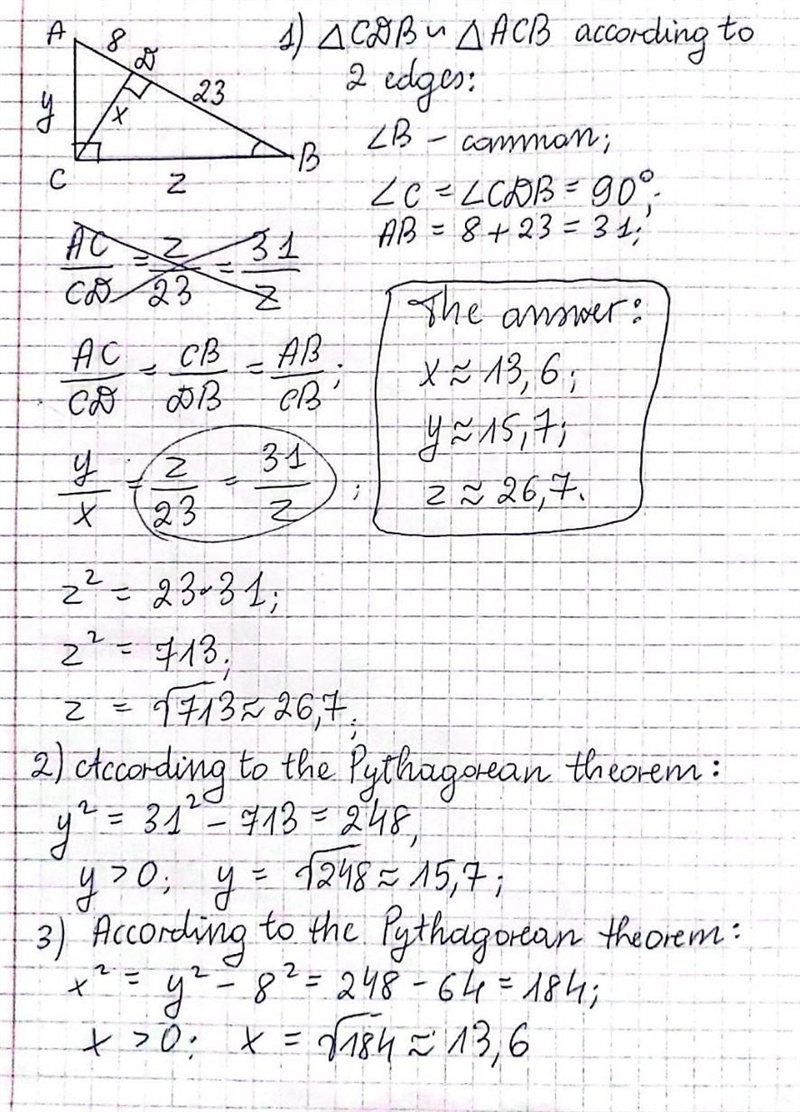 A 8 D 23 B
y x
C z
1) △CDB ∽ △ACB according to
2 edges:
∠B – common;
∠C = ∠CDB = 90°;
AB = 8 + 23 = 31;
AC/CD = z/23 = 31/z
AC/CD = CB/DB = AB/CB;
y/x = z/23 = 31/z;
The answer:
x ≈ 13,6;
y ≈ 15,7;
z ≈ 26,7.
z² = 23·31;
z² = 713;
z = √713 ≈ 26,7;
2) According to the Pythagorean theorem:
y² = 31² – 713 = 248,
y > 0; y = √248 ≈ 15,7;
3) According to the Pythagorean theorem:
x² = y² – 8² = 248 – 64 = 184;
x > 0; x = √184 ≈ 13,6